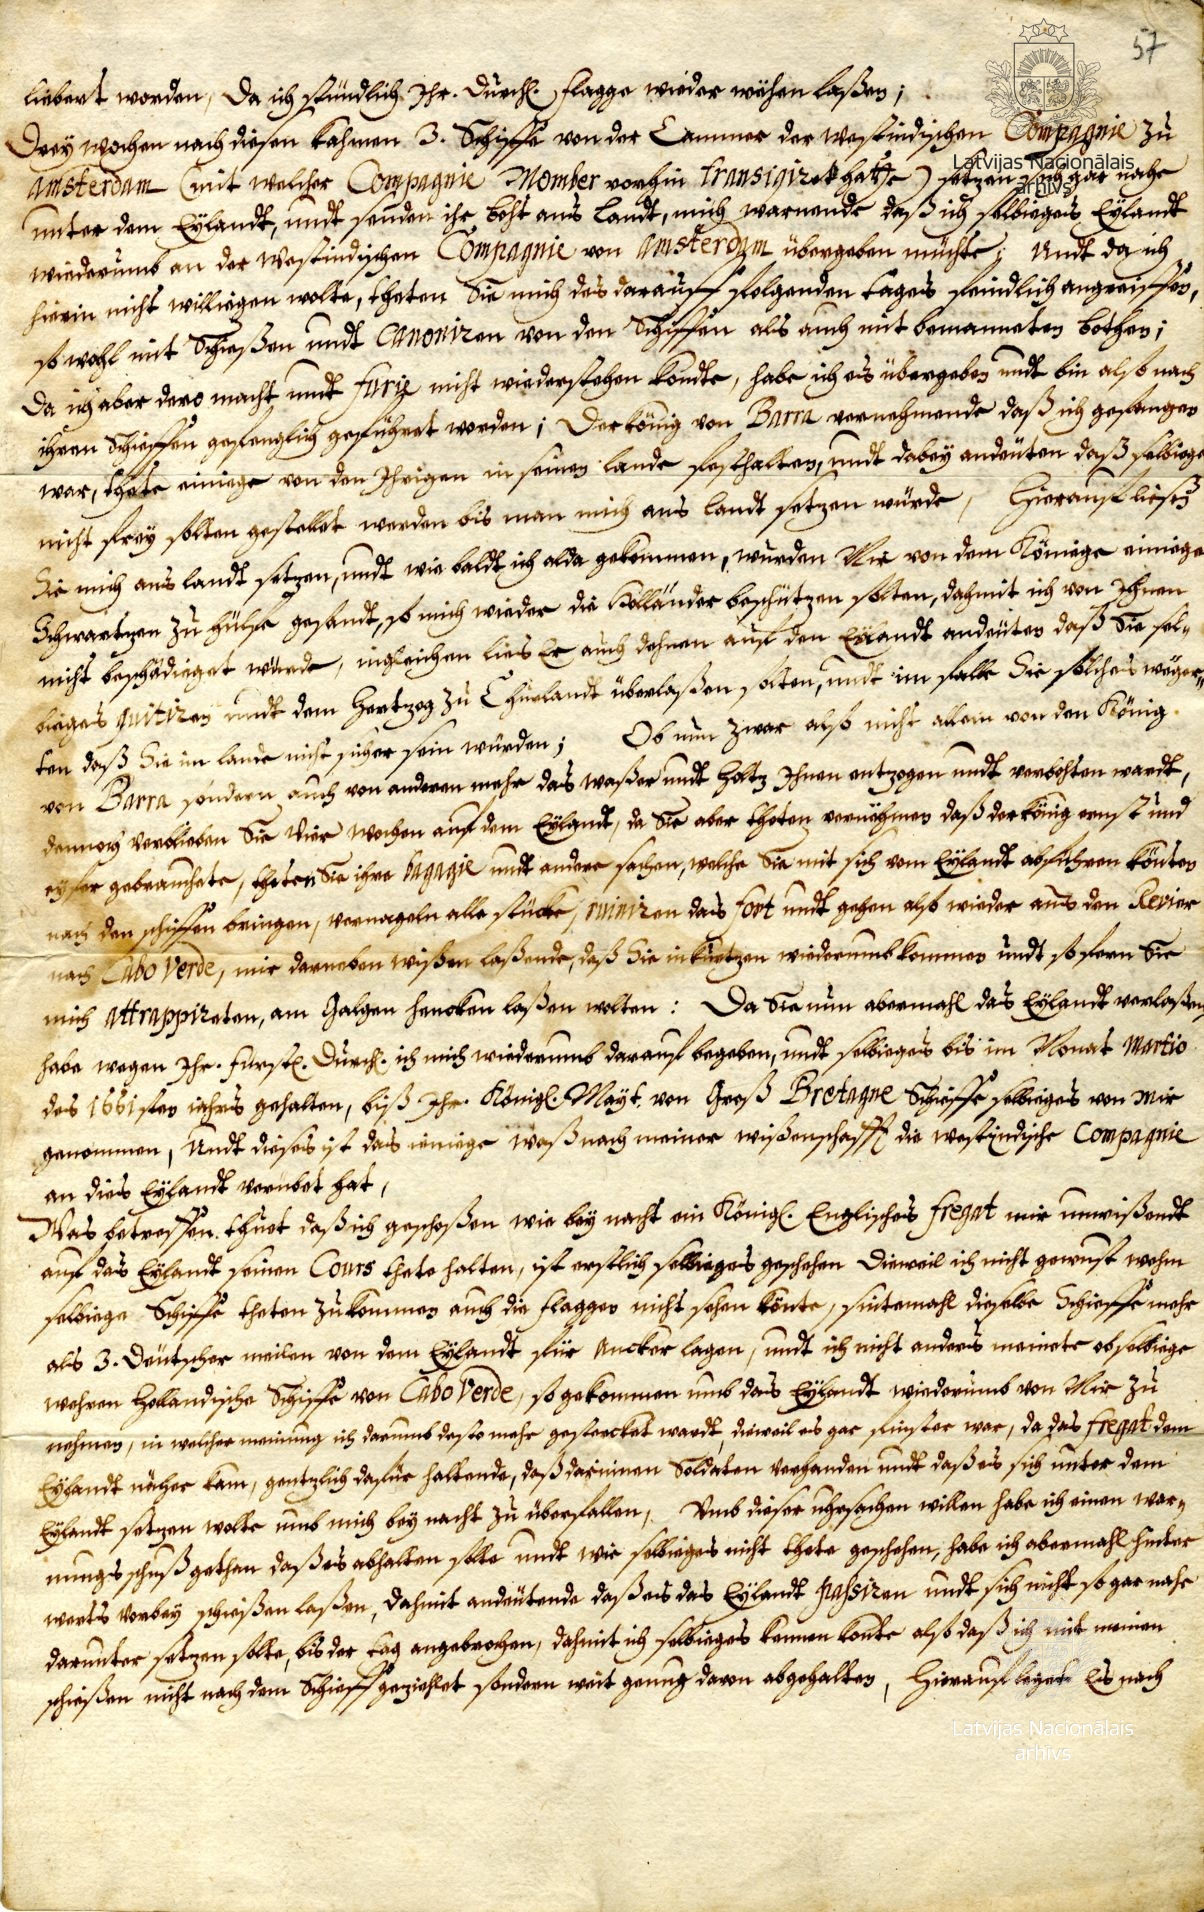 57
liebert worden, Da ich stündlich Ihr. Durchl. flagge wieder wehen laßen;
Drey wochen nach diesen kahmen 3. Schiffe von der Cammer der Westindischen Compagnie zu
Latvijas Nacionālais
arhīvs
Amsterdam (mit welcher Compagnie Momber vorhin transigiret hatte) setzen sich gar nahe
unter dem Eylandt, undt senden ihr boht ans landt, mich warnende daß ich selbieges Eylandt
wiederumb an der Westindischen Compagnie von Amsterdam übergeben müchte; Undt da ich
hierin nicht williegen wolte, theten Sie mich des darauff folgenden tages feindlich angreiffen,
so wohl mit Schießen undt Canoniren von den Schiffen als auch mit bemanneten bothen;
Da ich aber dero macht undt furie nicht wiederstehen kondte, habe ich es übergeben undt bin also nach
ihren Schieffen gefenglich geführet worden; Der könig von Barra vernehmende daß ich gefangen
war, thete einiege von den Ihrigen in seinen lande festhalten, undt dabey andeuten daß selbiege
nicht frey solten gestellet werden bis man mich ans landt setzen würde, Hierauf ließ
Sie mich ans landt setzen, undt wie baldt ich alda gekommen, wurden Mir von dem Köniege einiege
Schwartzen zu hülfe gesandt, so mich wieder die Holländer beschützen solten, dahmit ich von Ihnen
nicht beschädieget würde, ingleichen lies Er auch dehnen auf den Eylandt andeuten daß Sie sel-
bieges quitiren undt dem Hertzog zu Churlandt überlaßen solten, undt im falle Sie solches weger-
ten daß Sie im lande nicht sicher sein würden; Ob nun zwar also nicht allein von den König
von Barra sondern auch von anderen mehr das waßer undt holtz Ihnen entzogen undt verbohten wardt,
dennoch verblieben Sie vier wochen auf dem Eylandt, da Sie aber theten vernehmen daß der könig ernst und
eyfer gebrauchete, theten Sie ihre bagagie undt andere sachen, welche Sie mit sich vom Eylandt abführen könten
nach den schiffen bringen, vernageln alle stücke, ruiniren das fort undt gehen also wieder aus den Revier
nach Cabo Verde, mir darneben wißen laßende, daß Sie in kurtzen wiederumb kommen undt so fern Sie
mich attrappireten, am Galgen hencken laßen wolten: Da Sie nun abermahl das Eylandt verlaßen
habe wegen Ihr. Fürstl. Durchl. ich mich wiederumb darauf begeben, undt selbieges bis im Monat Martio
des 1661sten iahrs gehalten, biß Ihr. Königl. Mayt. von Groß Bretagne Schieffe selbieges von mir
genommen, Undt dieses ist das ieniege waß nach meiner wißenschafft die westindische Compagnie
an dies Eylandt verübet hat,
Was betreffen thuet daß ich geschoßen wie bey nacht ein Königl. Englisches fregat mir unwißendt
auf das Eylandt seinen Cours thete halten, ist erstlich selbieges geschehen Dieweil ich nicht gewust wehm
selbiege Schiffe theten zukommen auch die flaggen nicht sehen könte, sintemahl dieselbe Schieffe mehr
als 3. Deutscher meilen von dem Eylandt für Ancker lagen, undt ich nicht anders meinete ob selbiege
wehren Hollandische Schiffe von Cabo Verde, so gekommen umb das Eylandt wiederumb von Mir zu
nehmen, in welcher meinung ich darumb desto mehr gestercket wardt, dieweil es gar finster war, da das fregat dem
Eylandt näher kam, gentzlich dafür haltende, daß darinnen Soldaten verhanden undt daß es sich unter dem
Eylandt setzen wolte umb mich bey nacht zu überfallen, Umb dieser uhrsachen willen habe ich einen war-
nungs schuß gethan daß es abhalten solte undt wie selbieges nicht thete geschehen, habe ich abermahl hinter
werts vorbey schießen laßen, dahmit andeutende daß es das Eylandt passiren undt sich nicht so gar nahe
darunter setzen solte, bis der tag angebrochen, dahmit ich selbieges kennen könte also daß ich mit meinen
schießen nicht nach dem Schieff geziehlet sondern weit genug davon abgehalten, Hierauf legete Es nach
Latvijas Nacionālais
arhīvs